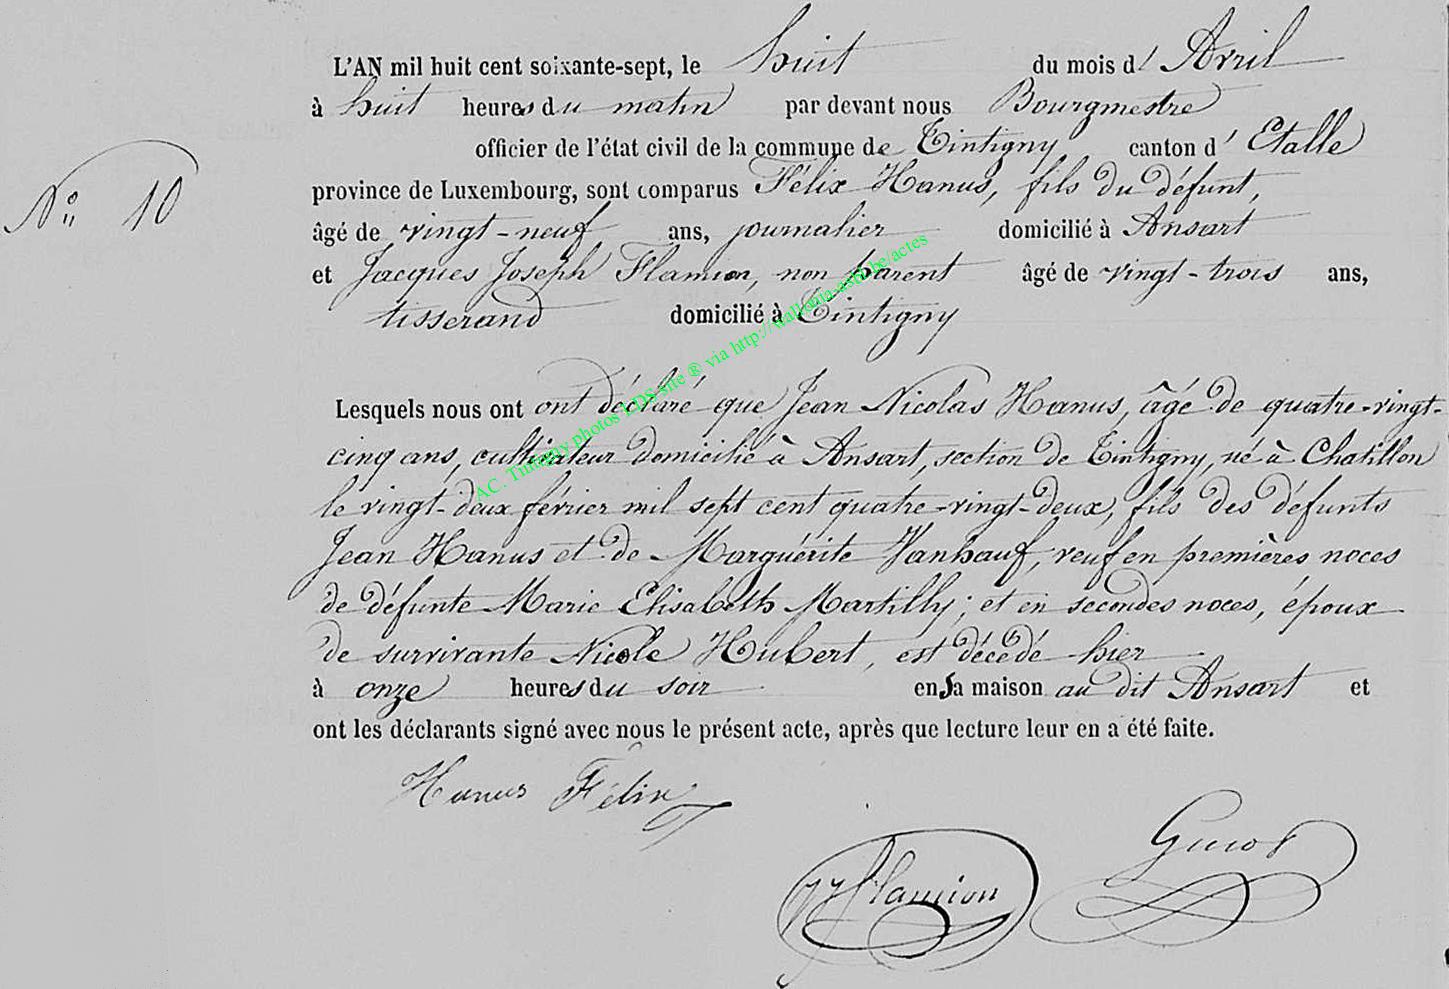 L'AN mil huit cent soixante-sept, le huit du mois d' Avril
à huit heures du matin par devant nous Bourgmestre
officier de l'état civil de la commune de Tintigny canton d' Etalle
N° 10
province de Luxembourg, sont comparus Félix Hanus, fils du défunt,
âgé de vingt-neuf ans, journalier domicilié à Ansart
et Jacques Joseph Flamion, non parent âgé de vingt-trois ans,
tisserand domicilié à Tintigny
AC. Tintigny photos LDS site ® via http://wallonia-asbl.be/actes
Lesquels nous ont ont déclaré que Jean Nicolas Hanus, âgé de quatre-vingt-
cinq ans, cultivateur domicilié à Ansart, section de Tintigny, né à Chatillon
le vingt-deux février mil sept cent quatre-vingt-deux, fils des défunts
Jean Hanus et de Marguérite Vanhauf, veuf en premières noces
de défunte Marie Elisabeth Martilly; et en secondes noces, époux
de survivante Nicole Hubert, est décédé hier
à onze heures du soir en sa maison au dit Ansart et
ont les déclarants signé avec nous le présent acte, après que lecture leur en a été faite.
Hanus Félix
JJ Flamion